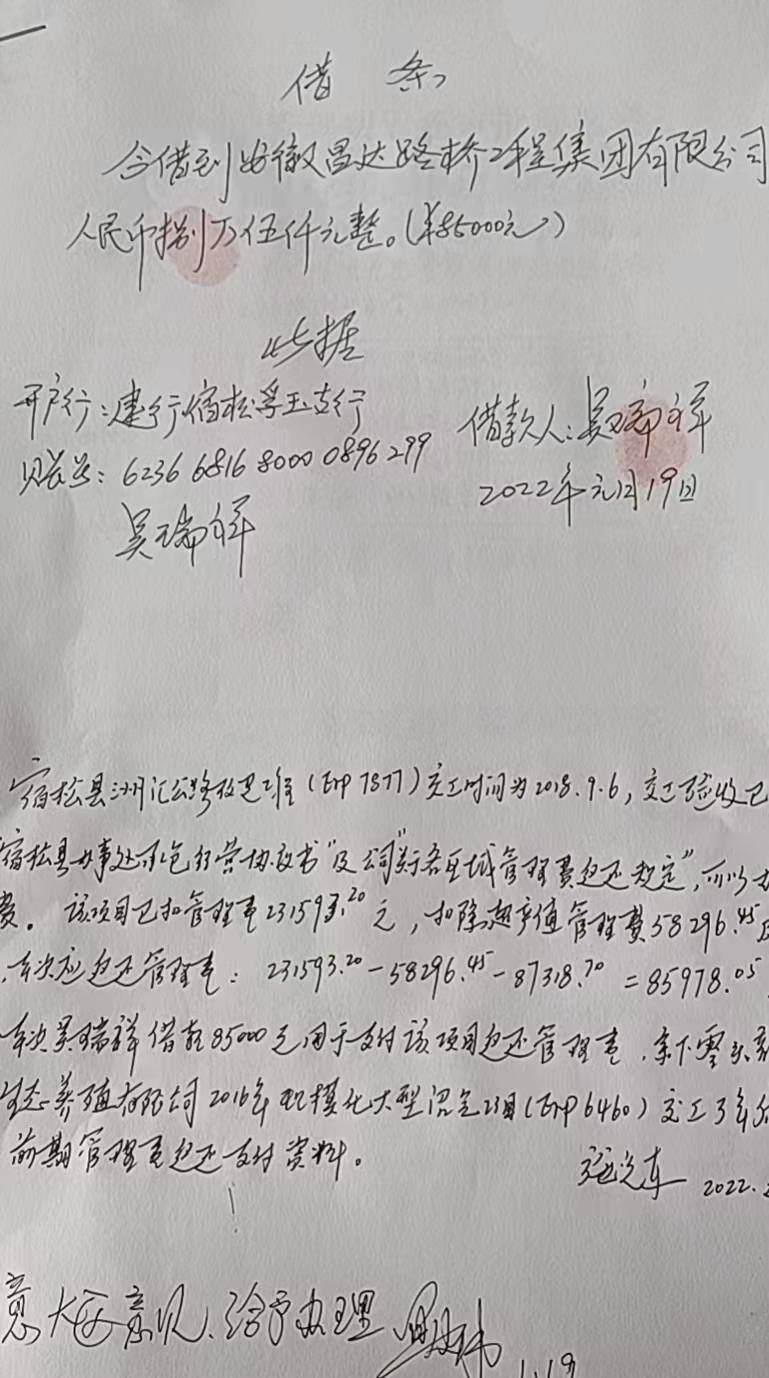 借 条
今借到安徽昌达路桥工程集团有限公司
人民币捌万伍仟元整。(¥85000元)
此据
开户行:建行宿松孚玉支行
账号:6236 6816 8000 0896 299
吴瑞祥
借款人:吴瑞祥
2022年元月19日
宿松县洲汇公路改建工程(Erp 7877)交工时间为2018.9.6,交工验收已
宿松县办事处承包经营协议书"及公司"关于各区域管理费返还规定",所以
费。该项目已扣管理费231593.20元,扣除超产值管理费58296.45
本次应返还管理费:231593.20-58296.45-87318.70=85978.05
本次吴瑞祥借款85000元用于支付该项目返还管理费,余下零头
生态养殖有限公司2016年规模化大型沼气项目(Erp 6460)交工
前期管理费返还支付资料。
2022.
意 意见,给予办理
1.19